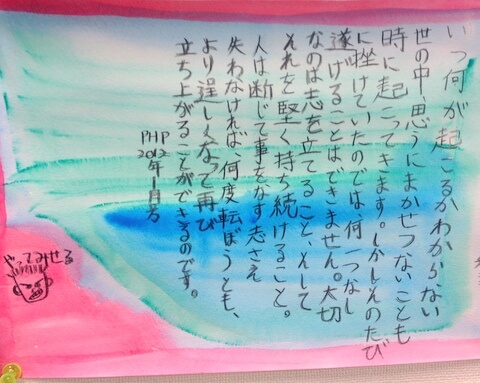 いつ何が起こるかわからない
世の中、思うにまかせつないことも
時に起こってきます。しかしそのたび
に挫けていたのでは、何一つなし
遂げることはできません。大切
なのは志を立てること、そして
それを堅く持ち続けること。
人は断じて事をなす志さえ
失わなければ、何度転ぼうとも、
より逞しくなって再び
立ち上がることができるのです。
PHP
2012年1月号
ってみせる